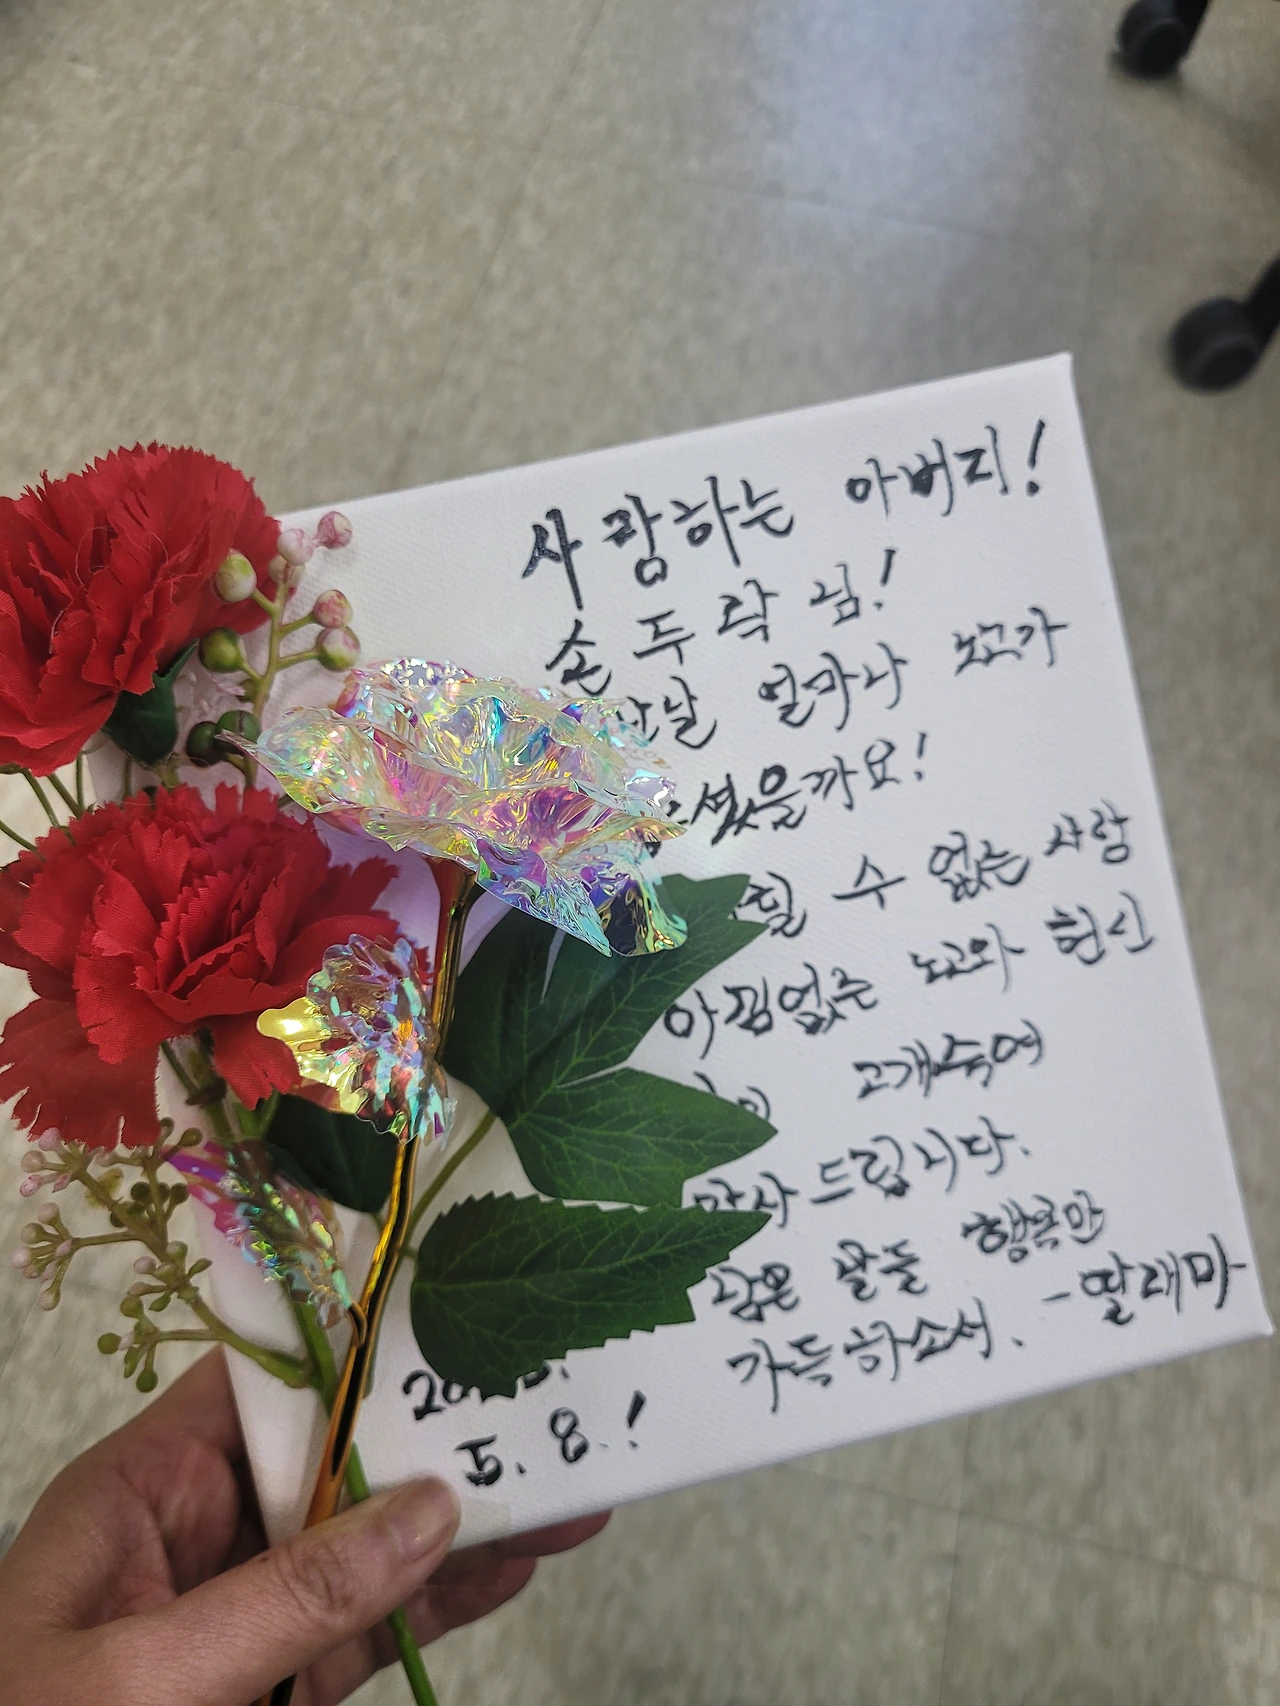 사랑하는 아버지!
손두락님!
날 얼마나 노고가
셨을까요!
수 없는 사랑
아낌없는 노고와 헌신
고개숙여
감사드립니다.
남은 날들 행복만
가득하소서. -딸래마
5. 8.!